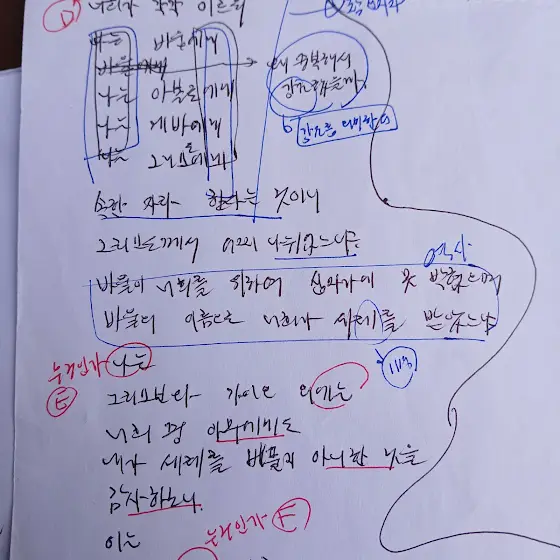 D 너희가 각각 이르되
나는 바울에게
바울에게
나는 아볼로에게
나는 게바에게
나는 그리스도에게
왜 반복해서
강조했을까
속한 자라 한다는 것이니
그리스도께서 어찌 나뉘었느냐
역사
바울이 너희를 위하여 십자가에 못 박혔으며
바울의 이름으로 너희가 세례를 받았느냐
누구인가 나는
E
그리스보와 가이오 외에는
너희 중 아무에게도
내가 세례를 베풀지 아니한 것을
감사하노니
이는
누구인가 E